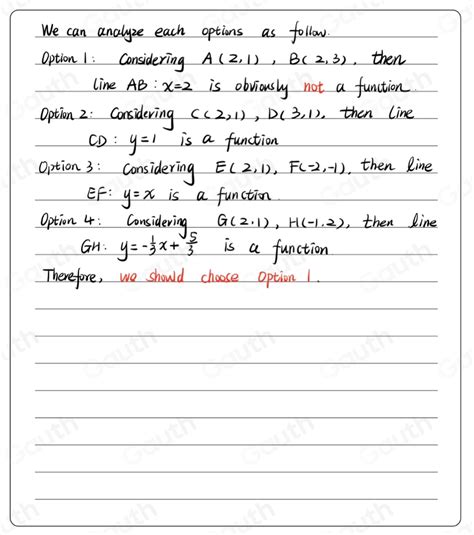 We can analyze each options as follow.
Option 1: Considering A(2,1), B(2,3), then
line AB: x=2 is obviously not a function.
Option 2: Considering C(2,1), D(3,1), then line
CD: y=1 is a function
Option 3: Considering E(2,1), F(-2,-1), then line
EF: y=x is a function.
Option 4: Considering G(2.1), H(-1.2), then line
GH: y=-1/3x+5/3 is a function
Therefore, we should choose Option 1.
Gauth